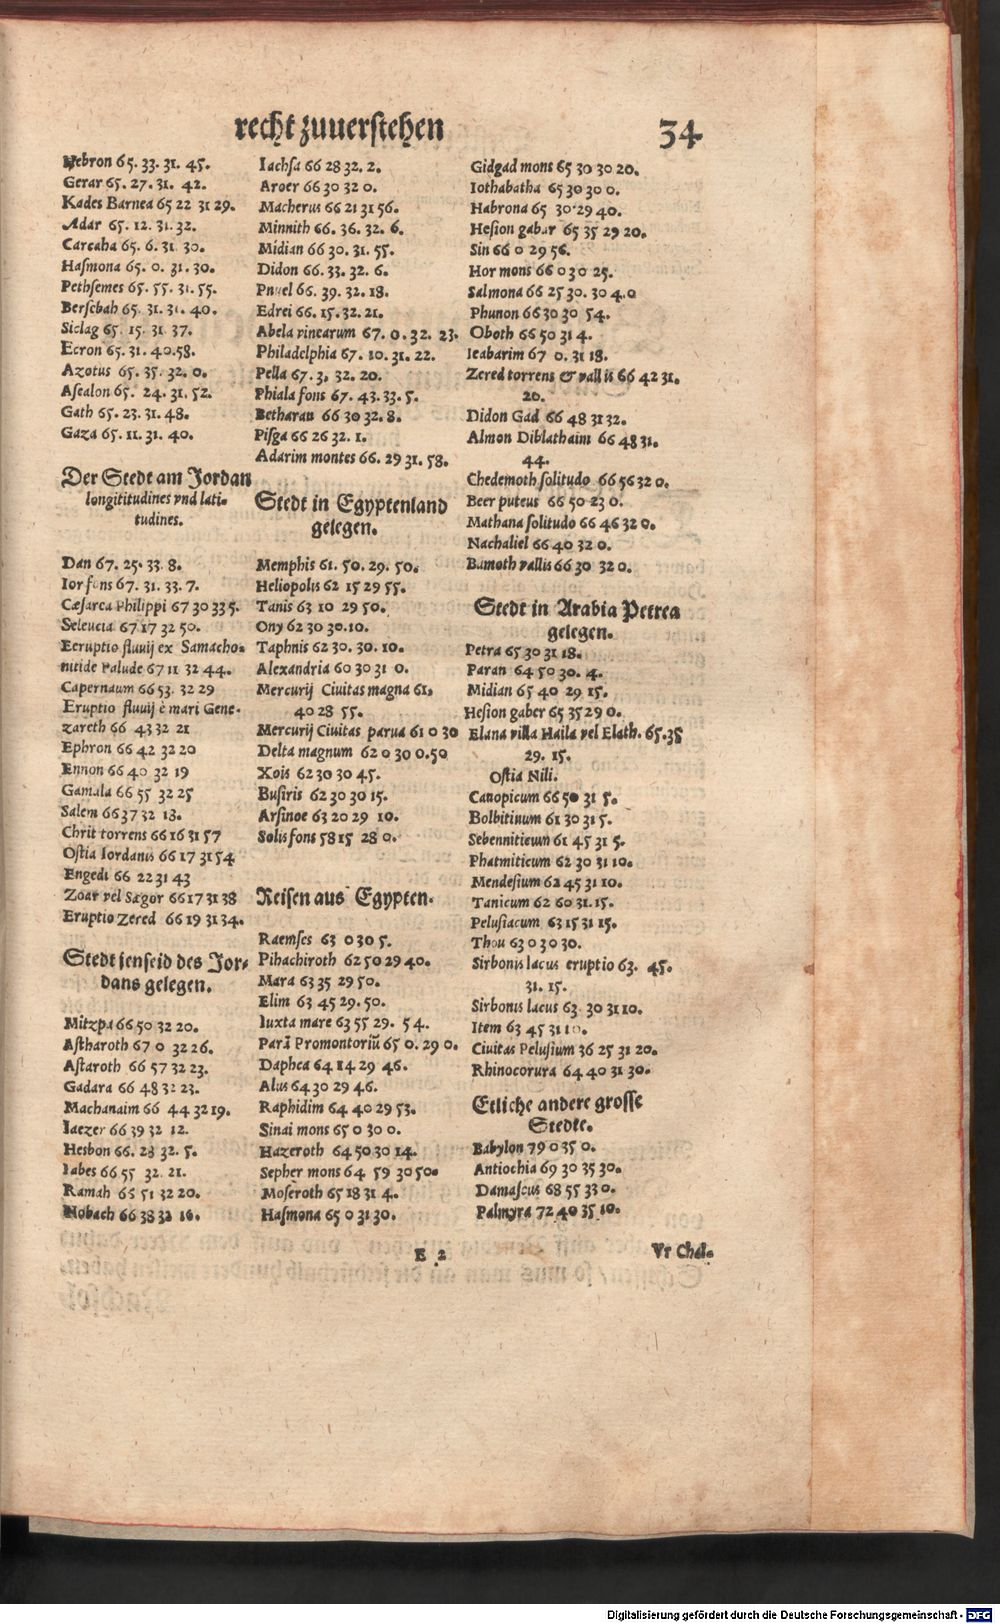 recht zuuerstehen
34
Hebron 65. 33. 31. 45.
Gerar 65. 27. 31. 42.
Kades Barnea 65 22 31 29.
Adar 65. 12. 31. 32.
Carcaha 65. 6. 31. 30.
Hasmona 65. 0. 31. 30.
Pethsemes 65. 55. 31. 55.
Bersebah 65. 31. 31. 40.
Siclag 65. 15. 31. 37.
Ecron 65. 31. 40. 58.
Azotus 65. 35. 32. 0.
Ascalon 65. 24. 31. 52.
Gath 65. 23. 31. 48.
Gaza 65. 11. 31. 40.
Der Stedt am Jordan
longititudines vnd lati-
tudines.
Dan 67. 25. 33. 8.
Ior fons 67. 31. 33. 7.
Cæsarca Philippi 67 30 33 5.
Seleucia 67 17 32 50.
Ecruptio fluuij ex Samacho-
nitide Palude 67 11 32 44.
Capernaum 66 53. 32 29
Eruptio fluuij è mari Gene-
zareth 66 43 32 21
Ephron 66 42 32 20
Ennon 66 40 32 19
Gamala 66 55 32 25
Salem 66 37 32 18.
Chrit torrens 66 16 31 57
Ostia Iordanis 66 17 31 54
Engedi 66 22 31 43
Zoar vel Sægor 66 17 31 38
Eruptio Zered 66 19 31 34.
Stedt jenseid des Jor-
dans gelegen.
Mitzpa 66 50 32 20.
Astharoth 67 0 32 26.
Astaroth 66 57 32 23.
Gadara 66 48 32 23.
Machanaim 66 44 32 19.
Iaezer 66 39 32 12.
Hesbon 66. 28 32. 5.
Iabes 66 55 32. 21.
Ramah 66 51 32 20.
Nobach 66 38 32 16.
Iachsa 66 28 32. 2.
Aroer 66 30 32 0.
Macherus 66 21 31 56.
Minnith 66. 36. 32. 6.
Midian 66 30. 31. 55.
Didon 66. 33. 32. 6.
Pnuel 66. 39. 32. 18.
Edrei 66. 15. 32. 21.
Abela vinearum 67. 0. 32. 23.
Philadelphia 67. 10. 31. 22.
Pella 67. 3. 32. 20.
Phiala fons 67. 43. 33. 5.
Betharan 66 30 32. 8.
Pisga 66 26 32. 1.
Adarim montes 66. 29 31. 58.
Stedt in Egyptenland
gelegen.
Memphis 61. 50. 29. 50.
Heliopolis 62 15 29 55.
Tanis 63 10 29 50.
Ony 62 30 30. 10.
Taphnis 62 30. 30. 10.
Alexandria 60 30 31 0.
Mercurij Ciuitas magna 61,
40 28 55.
Mercurij Ciuitas parua 61 0 30
Delta magnum 62 0 30 0. 50
Xois 62 30 30 45.
Busiris 62 30 30 15.
Arsinoe 63 20 29 10.
Solis fons 58 15 28 0.
Reisen aus Egypten.
Raemses 63 0 30 5.
Pihachiroth 62 50 29 40.
Mara 63 35 29 50.
Elim 63 45 29. 50.
Iuxta mare 63 55 29. 54.
Parā Promontoriū 65 0. 29 0.
Daphca 64 14 29 46.
Alus 64 30 29 46.
Raphidim 64 40 29 53.
Sinai mons 65 0 30 0.
Hazeroth 64 50 30 14.
Sepher mons 64 59 30 50.
Moseroth 65 18 31 4.
Hasmona 65 0 31 30.
Gidgad mons 65 30 30 20.
Iothabatha 65 30 30 0.
Habrona 65 30 29 40.
Hesion gabar 65 35 29 20.
Sin 66 0 29 56.
Hor mons 66 0 30 25.
Salmona 66 25 30. 30 4. 0
Phunon 66 30 30 54.
Oboth 66 50 31 4.
Ieabarim 67 0. 31 18.
Zered torrens & vallis 66 42 31.
20.
Didon Gad 66 48 31 32.
Almon Diblathaim 66 48 31.
44.
Chedemoth solitudo 66 56 32 0.
Beer puteus 66 50 23 0.
Mathana solitudo 66 46 32 0.
Nachaliel 66 40 32 0.
Bamoth vallis 66 30 32 0.
Stedt in Arabia Petrea
gelegen.
Petra 65 30 31 18.
Paran 64 50 30. 4.
Midian 65 40 29 15.
Hesion gaber 65 35 29 0.
Elana villa Haila vel Elath. 65. 35
29. 15.
Ostia Nili.
Canopicum 66 50 31 5.
Bolbitinum 61 30 31 5.
Sebenniticum 61 45 31 5.
Phatmiticum 62 30 31 10.
Mendesium 62 45 31 10.
Tanicum 62 60 31. 15.
Pelusiacum 63 15 31 15.
Thou 63 0 30 30.
Sirbonis lacus eruptio 63. 45.
31. 15.
Sirbonis lacus 63. 30 31 10.
Item 63 45 31 10.
Ciuitas Pelusium 36 25 31 20.
Rhinocorura 64 40 31 30.
Etliche andere grosse
Stedte.
Babylon 79 0 35 0.
Antiochia 69 30 35 30.
Damascus 68 55 33 0.
Palmyra 72 40 35 10.
E 2
Vr Chal.
Digitalisierung gefördert durch die Deutsche Forschungsgemeinschaft - DFG